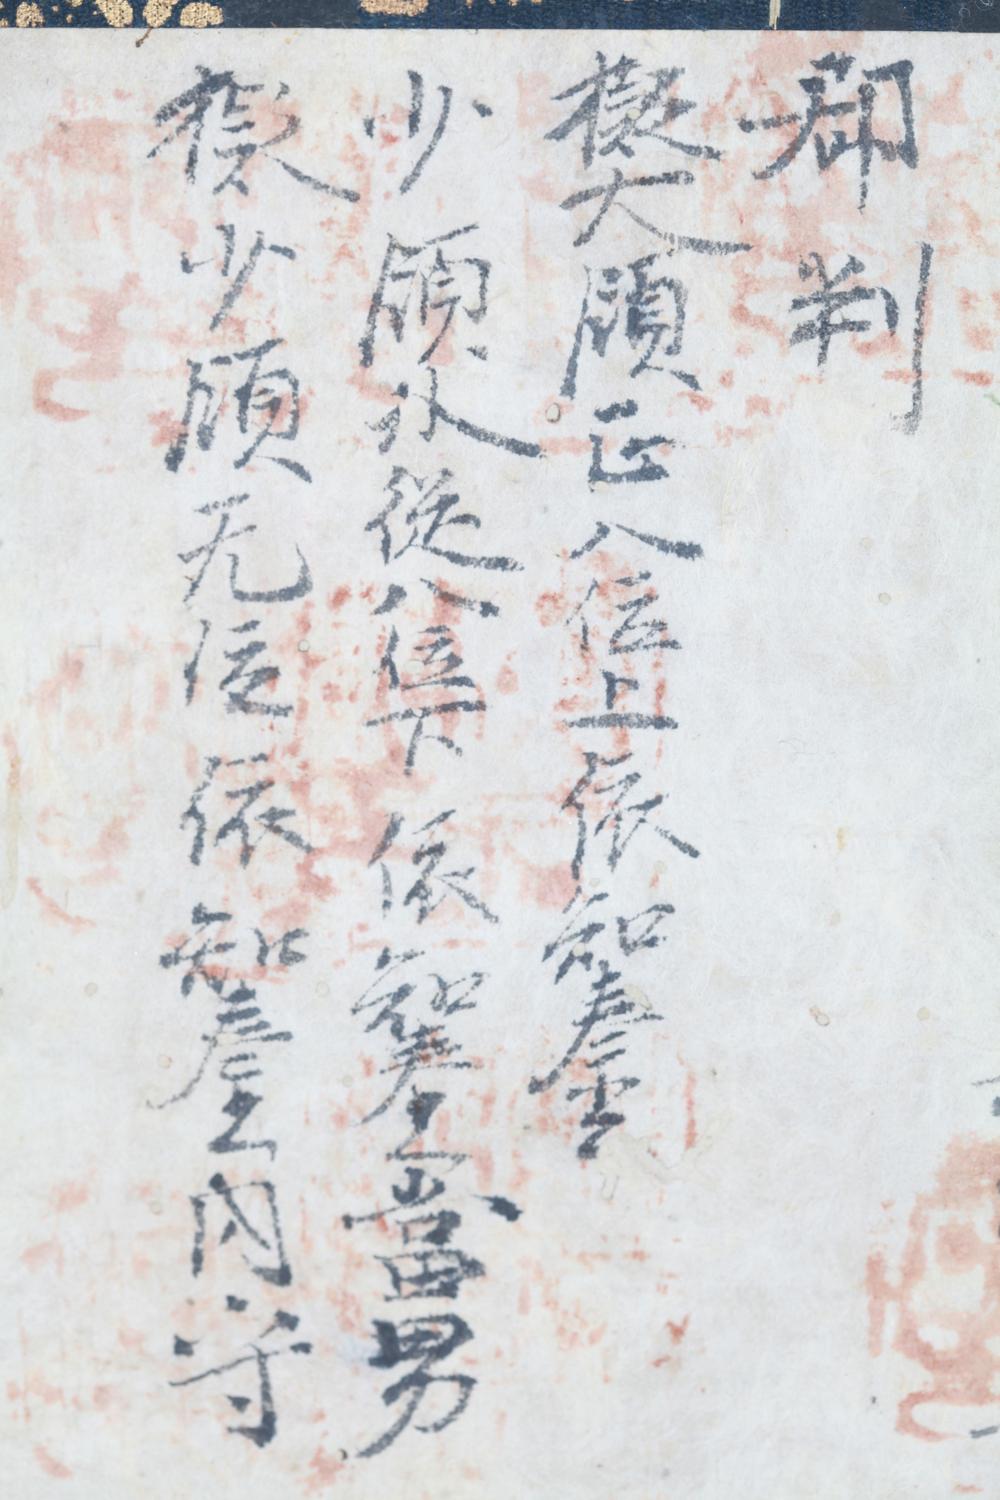 郡判
擬大領正八位上依知秦公
少領外從八位下依知秦公當男
擬少領无位依知秦公内守